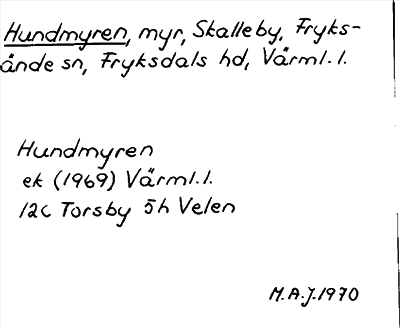 Hundmyren, myr, Skalleby, Fryks-
ände sn, Fryksdals hd, Värml. l.
Hundmyren
ek (1969) Värml. l.
12c Torsby 5h Velen
M.A.J. 1970